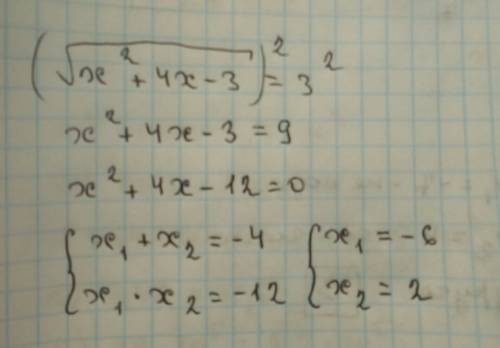 (√x² + 4x - 3)² = 3²
x² + 4x - 3 = 9
x² + 4x - 12 = 0
{ x₁ + x₂ = -4 { x₁ = -6
{ x₁ · x₂ = -12 { x₂ = 2